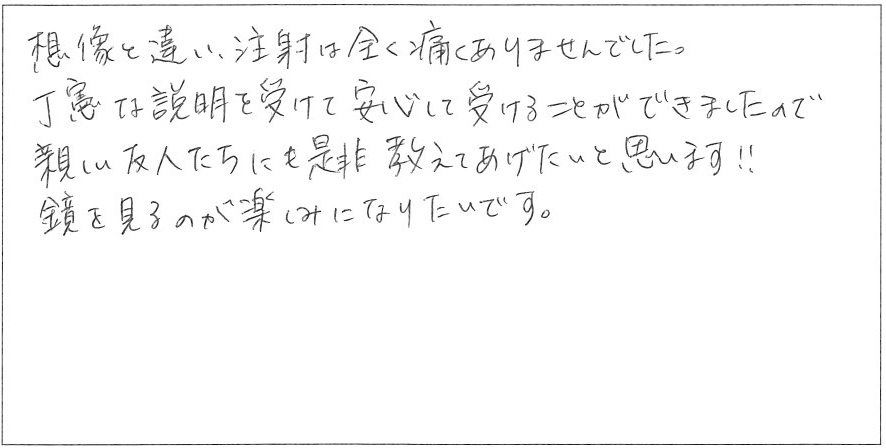 想像と違い、注射は全く痛くありませんでした。
丁寧な説明を受けて安心して受けることができましたので
親しい友人たちにも是非教えてあげたいと思います!!
鏡を見るのが楽しみになりたいです。